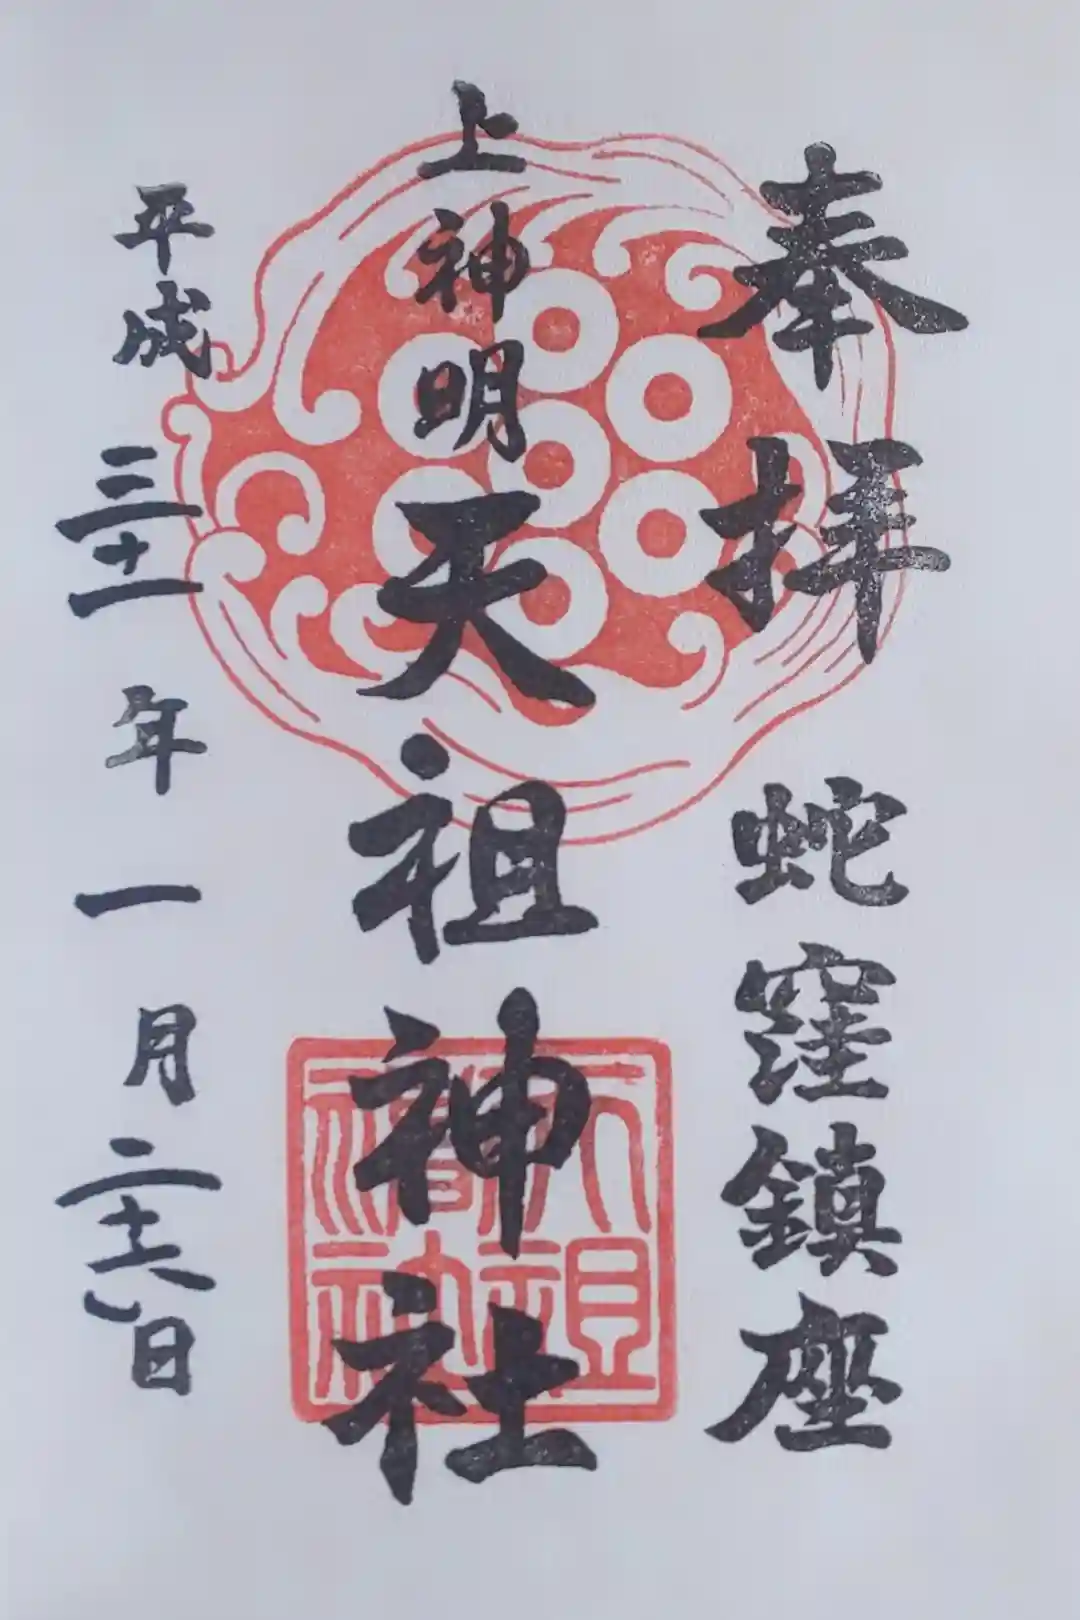 奉拝 蛇窪鎮座
上神明天祖神社
平成三十一年一月二十六日
天祖神社